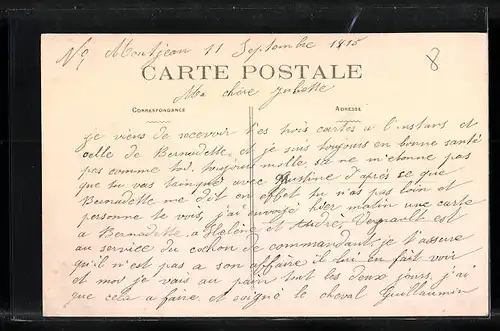 No 7 Montjean 11 Septembre 1915
8
CARTE POSTALE
Ma chère Juliette
CORRESPONDANCE
ADRESSE
je viens de recevoir tes trois cartes a l'instant et
celle de Bernadette et je suis toujours en bonne santé
pas comme toi toujours molle sa ne m'étonne pas
que tu vas avec Justine d'après se que
Bernadette me dit en effet tu n'as pas loin et
personne te vois, j'ai envoyé hier matin une carte
a Bernadette, a Hélène, et André Vernault est
au service du cochon de commandant, je t'assure
qu'il n'est pas a son affaire il lui en fait voir
et moi je vais au pain tout les deux jours, j'ai
que cela a faire, et soigné le cheval Guillaumin